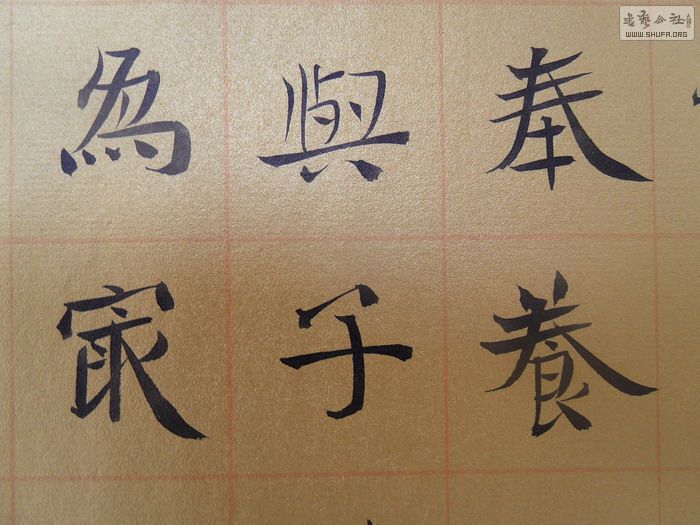 奉養
與子
為㝡
書藝公社
WWW.SHUFA.ORG